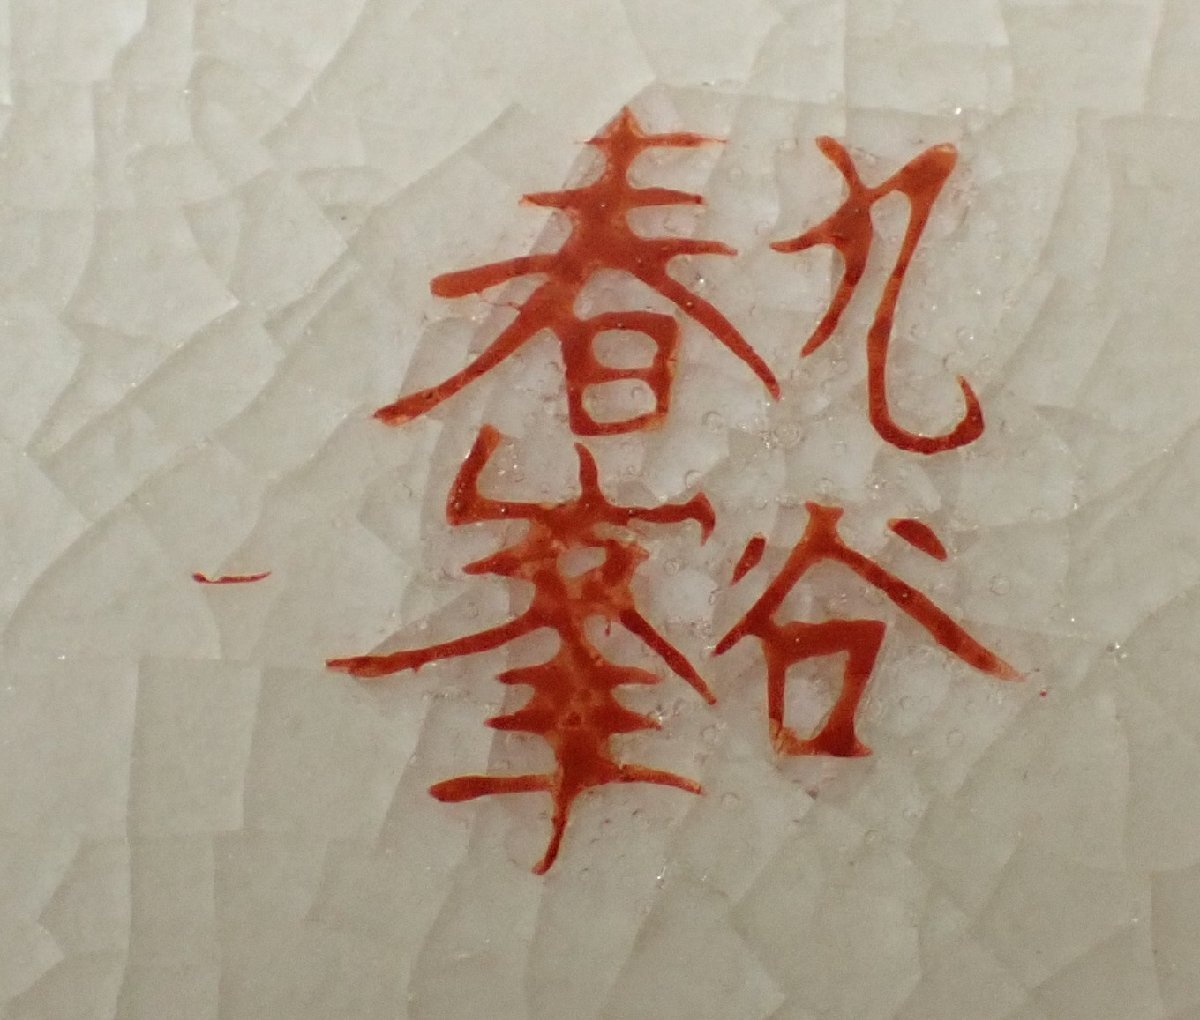 九谷
春峯